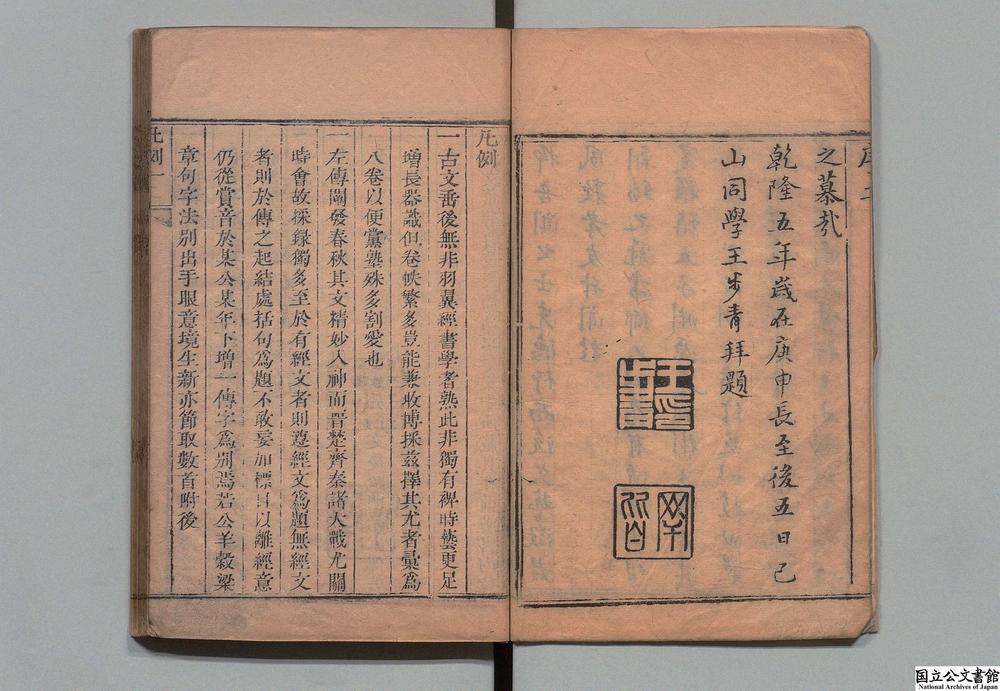 序二
之慕哉
乾隆五年歲在庚申長至後五日己
山同學王步青拜題
王步青印
罕皆
凡例
一古文垂後無非羽翼經書學者熟此非獨有裨時藝更足
增長器識但卷帙繁多豈能兼收博採茲擇其尤者彙爲
八卷以便黨塾殊多割愛也
一左傳闡發春秋其文精妙入神而晋楚齊秦諸大戰尤關
時會故採録獨多至於有經文者則遵經文爲題無經文
者則於傳之起結處括句爲題不敢妄加標目以離經意
仍從賞音於某公某年下增一傳字爲别焉若公羊穀梁
章句字法别出手眼意境生新亦節取數首附後
凡例一
国立公文書館
National Archives of Japan